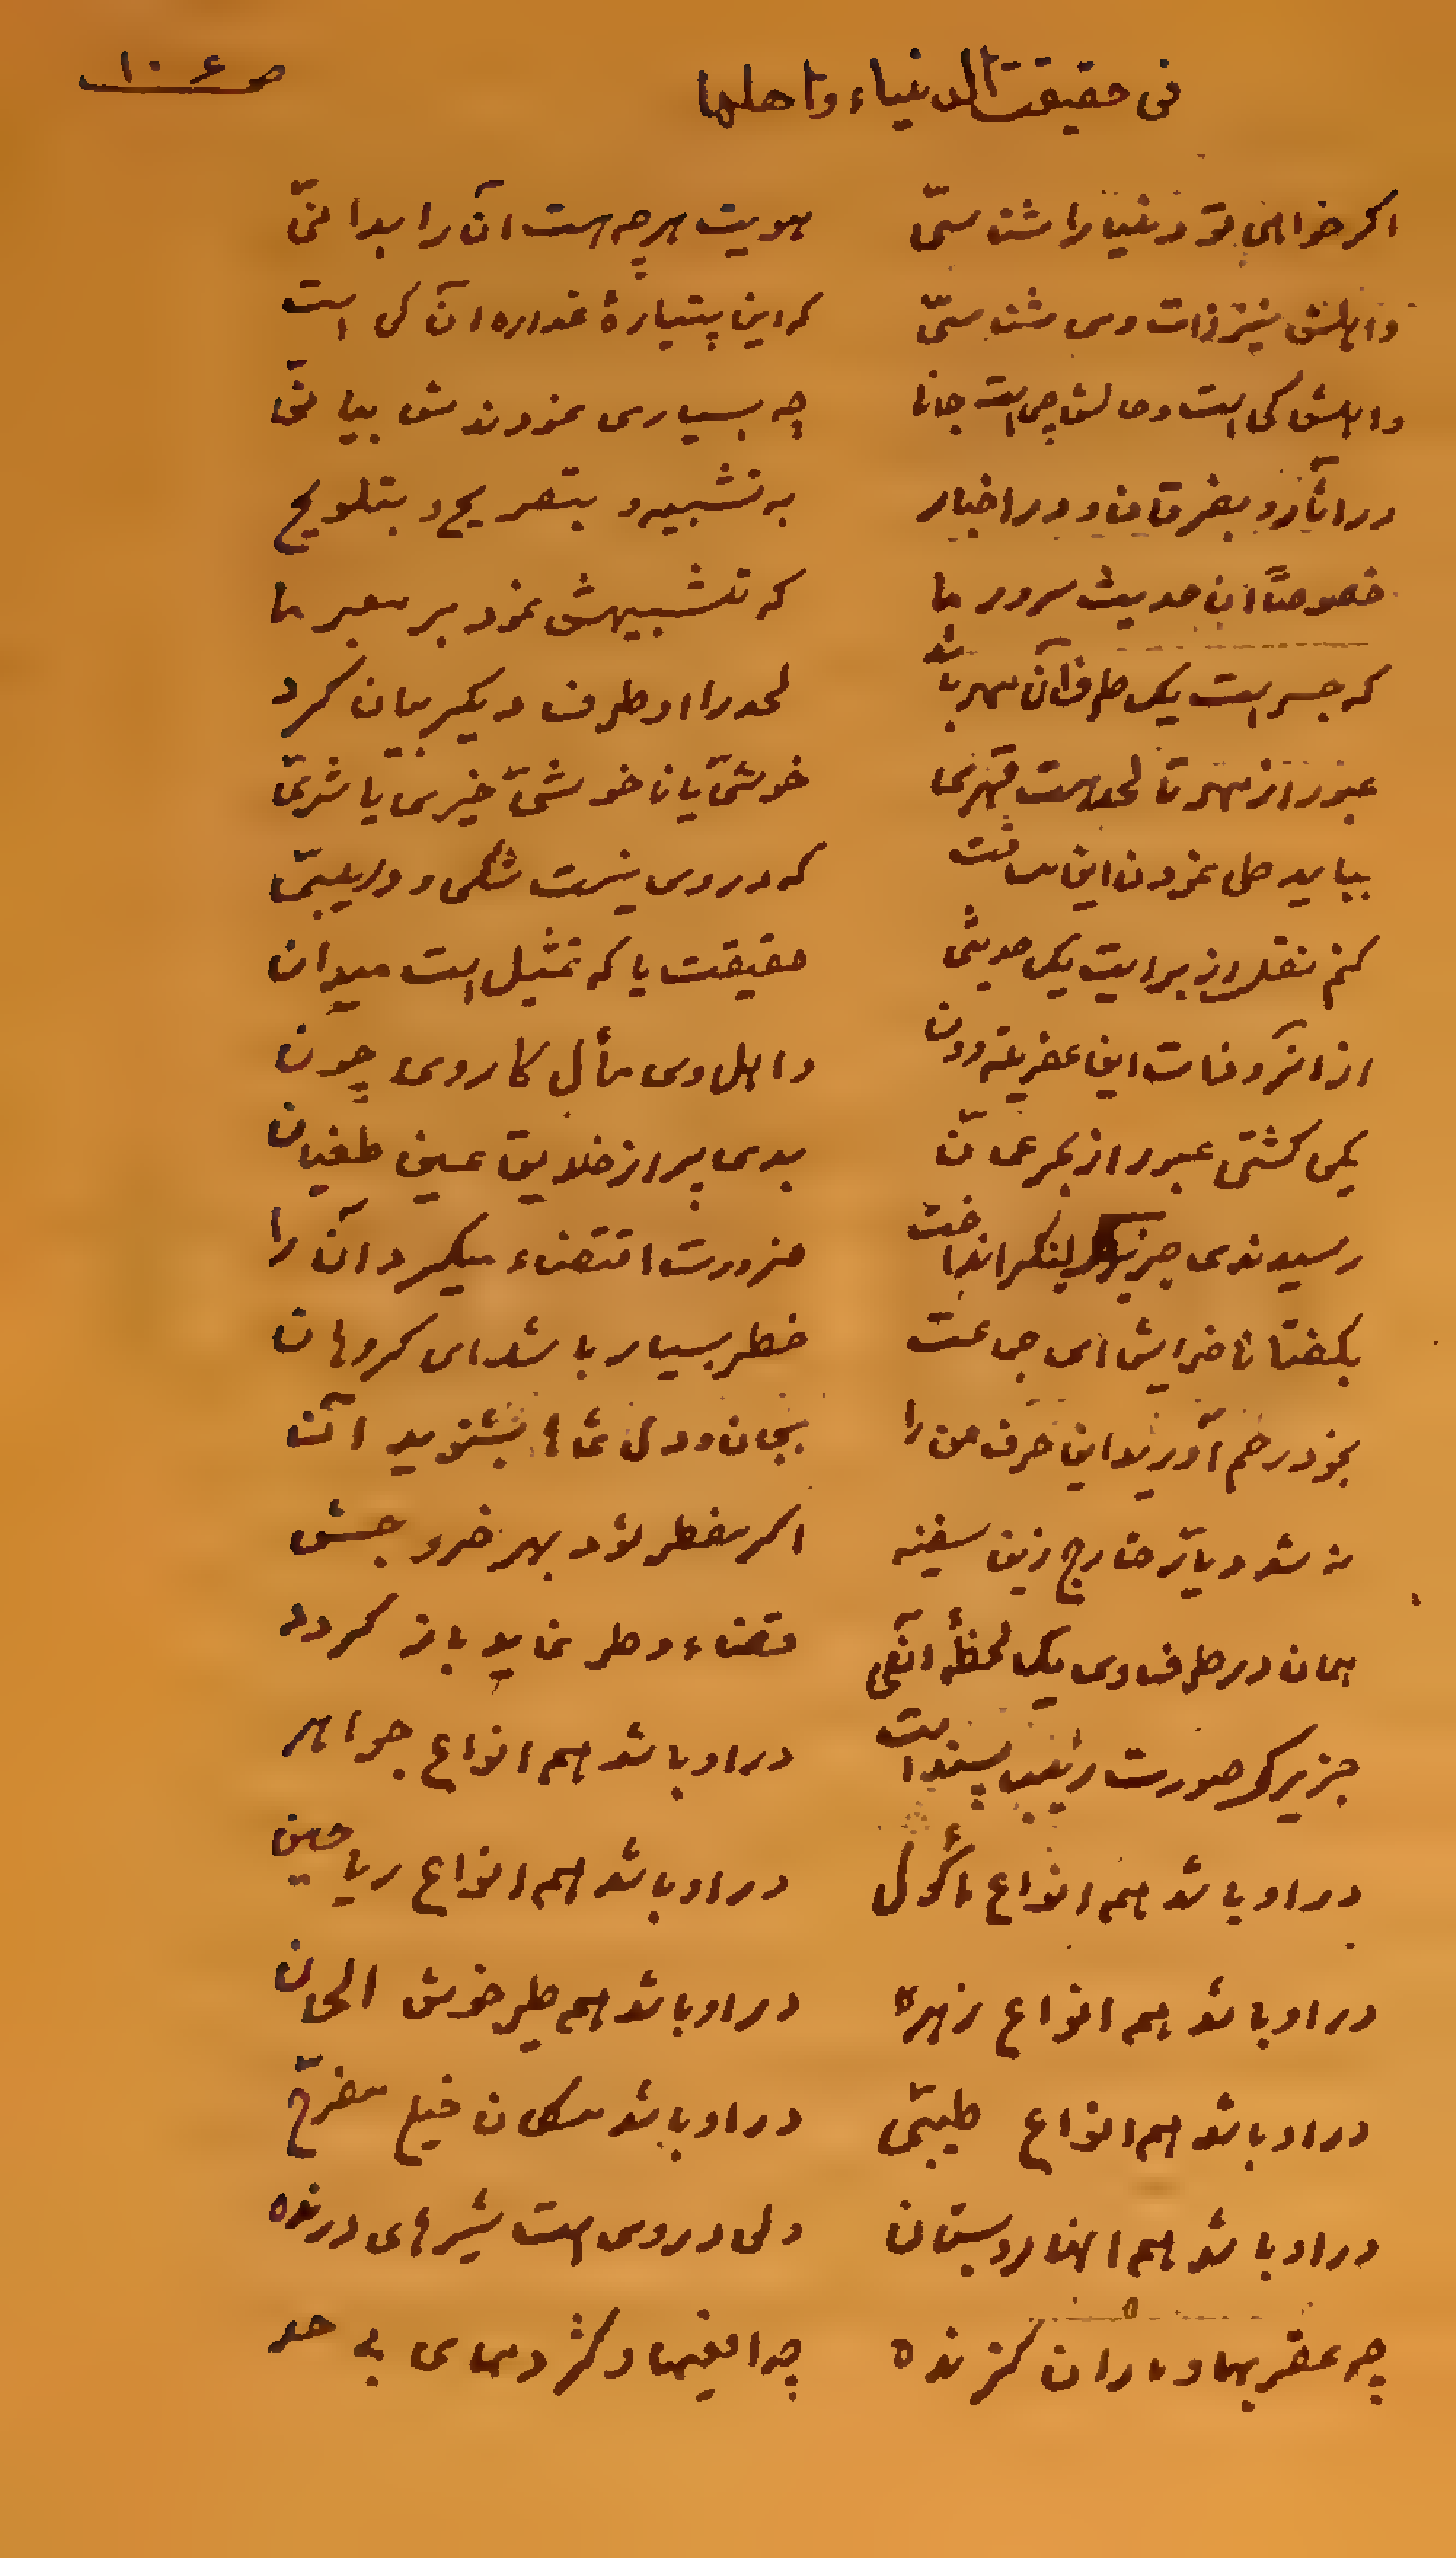 فی حقیقت الدنیاء واهلها
ص ١٠٦
اکر خواهی تو دنیا را شناسیّ هویت هرچه هست آن را بدانیّ
واهلش نیز ذات وی شناسیّ که این پتیارهٔ غداره آن کی است
واهلش کی است وحالش چی است جانا چه بسیاری نمودندش بیانیّ
در آثار و بفرقان و در اخبار به تشبیه و بتصریح و بتلویح
خصوصاً آن حدیث سرور ما که تشبیهش نمود بر معبر ما
که جسر است یک طرف آن مهد باشد لحد را او طرف دیکر بیان کرد
عبور از مهد تا لحد است قهری خوشیّ یا ناخوشیّ خیری یا شریّ
بباید حل نمودن این مسافت که در وی نیست شکی و دریبیّ
کنم نقل از برایت یک حدیثی حقیقت یا که تمثیل است میدان
از آفات این عفریته دون واهل وی مآل کار وی چون
یکی کشتی عبور از بحر عمان بدی پر از خلایق عین طغیان
رسیدندی لنکر انداخت ضرورت اقتضاء میکرد آن را
بکفتا ناخدایش ای جماعت خطر بسیار باشد ای کروهان
بخود رحم آورید این حرف من را بجان و دل شما بشنوید
نه شد دیار خارج زین سفینه اکر مضطر بهر خروجش
همان در طرف وی یک لحظهٔ قضاء وطر نماید باز کردد
جزیر کر صورت پسند است در او باشد هم انواع جواهر
در او باشد هم انواع مأکول در او باشد هم انواع ریاحین
در او باشد هم انواع زهره در او باشد هم طیر خوش الحان
در او باشد هم انواع طیبیّ در او باشد مکان خیلی مفرّح
در او باشد هم انهار و بستان ولی در وی است شیرهای درنده
چه عقربها و ماران کزنده چه افعیها و کژدمهای بی حد